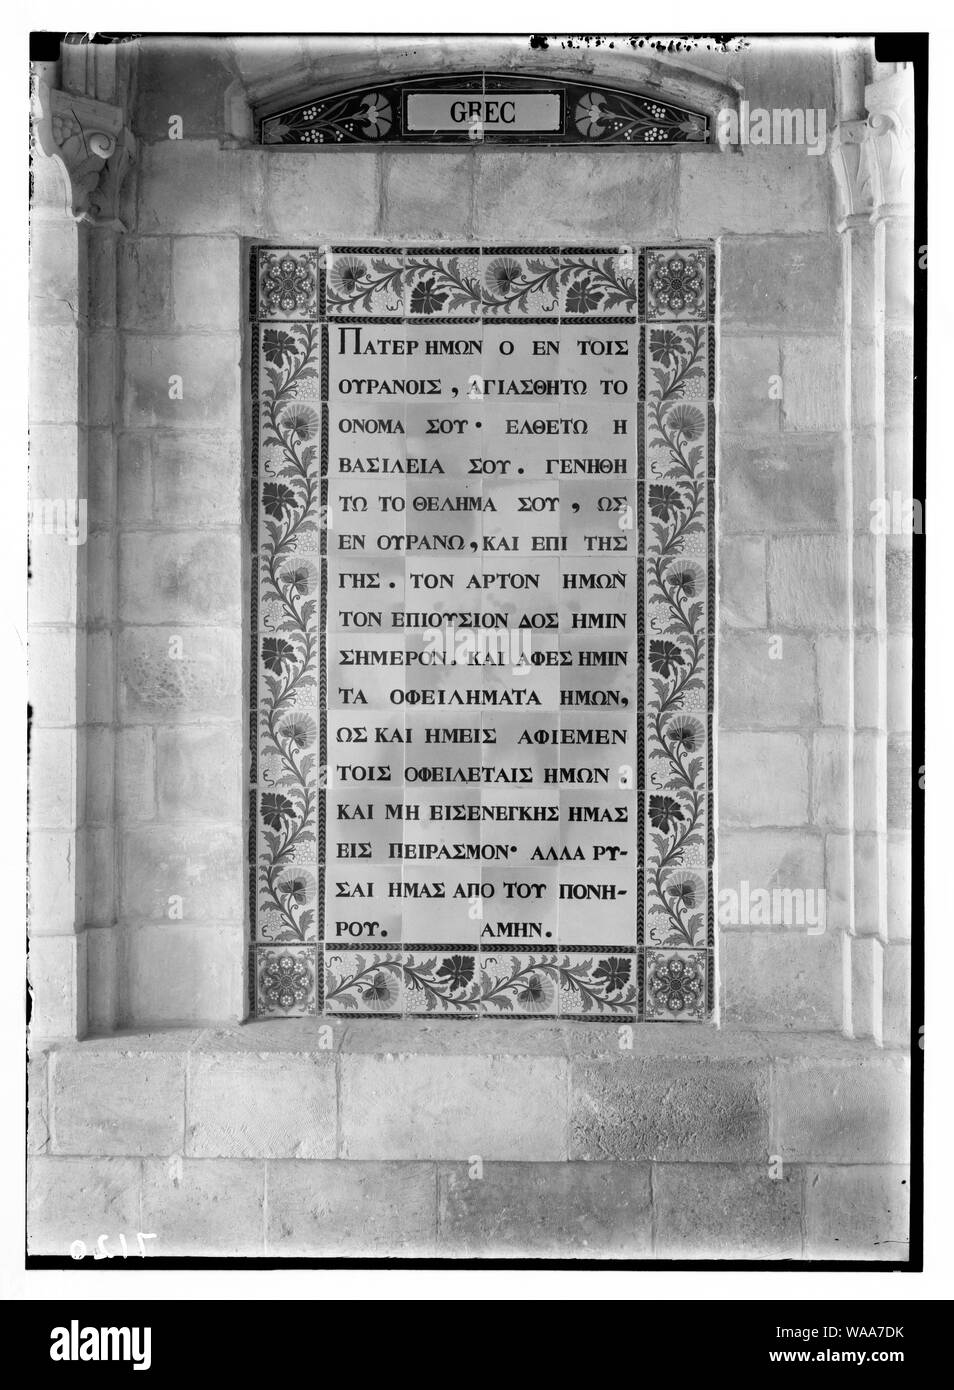 GREC
ΠΑΤΕΡ ΗΜΩΝ Ο ΕΝ ΤΟΙΣ
ΟΥΡΑΝΟΙΣ, ΑΓΙΑΣΘΗΤΩ ΤΟ
ΟΝΟΜΑ ΣΟΥ· ΕΛΘΕΤΩ Η
ΒΑΣΙΛΕΙΑ ΣΟΥ. ΓΕΝΗΘΗ
ΤΩ ΤΟ ΘΕΛΗΜΑ ΣΟΥ, ΩΣ
ΕΝ ΟΥΡΑΝΩ, ΚΑΙ ΕΠΙ ΤΗΣ
ΓΗΣ. ΤΟΝ ΑΡΤΟΝ ΗΜΩΝ
ΤΟΝ ΕΠΙΟΥΣΙΟΝ ΔΟΣ ΗΜΙΝ
ΣΗΜΕΡΟΝ. ΚΑΙ ΑΦΕΣ ΗΜΙΝ
ΤΑ ΟΦΕΙΛΗΜΑΤΑ ΗΜΩΝ,
ΩΣ ΚΑΙ ΗΜΕΙΣ ΑΦΙΕΜΕΝ
ΤΟΙΣ ΟΦΕΙΛΕΤΑΙΣ ΗΜΩΝ.
ΚΑΙ ΜΗ ΕΙΣΕΝΕΓΚΗΣ ΗΜΑΣ
ΕΙΣ ΠΕΙΡΑΣΜΟΝ· ΑΛΛΑ ΡΥ-
ΣΑΙ ΗΜΑΣ ΑΠΟ ΤΟΥ ΠΟΝΗ-
ΡΟΥ. ΑΜΗΝ.
7120
alamy
alamy
Image ID: WAA7DK
www.alamy.com